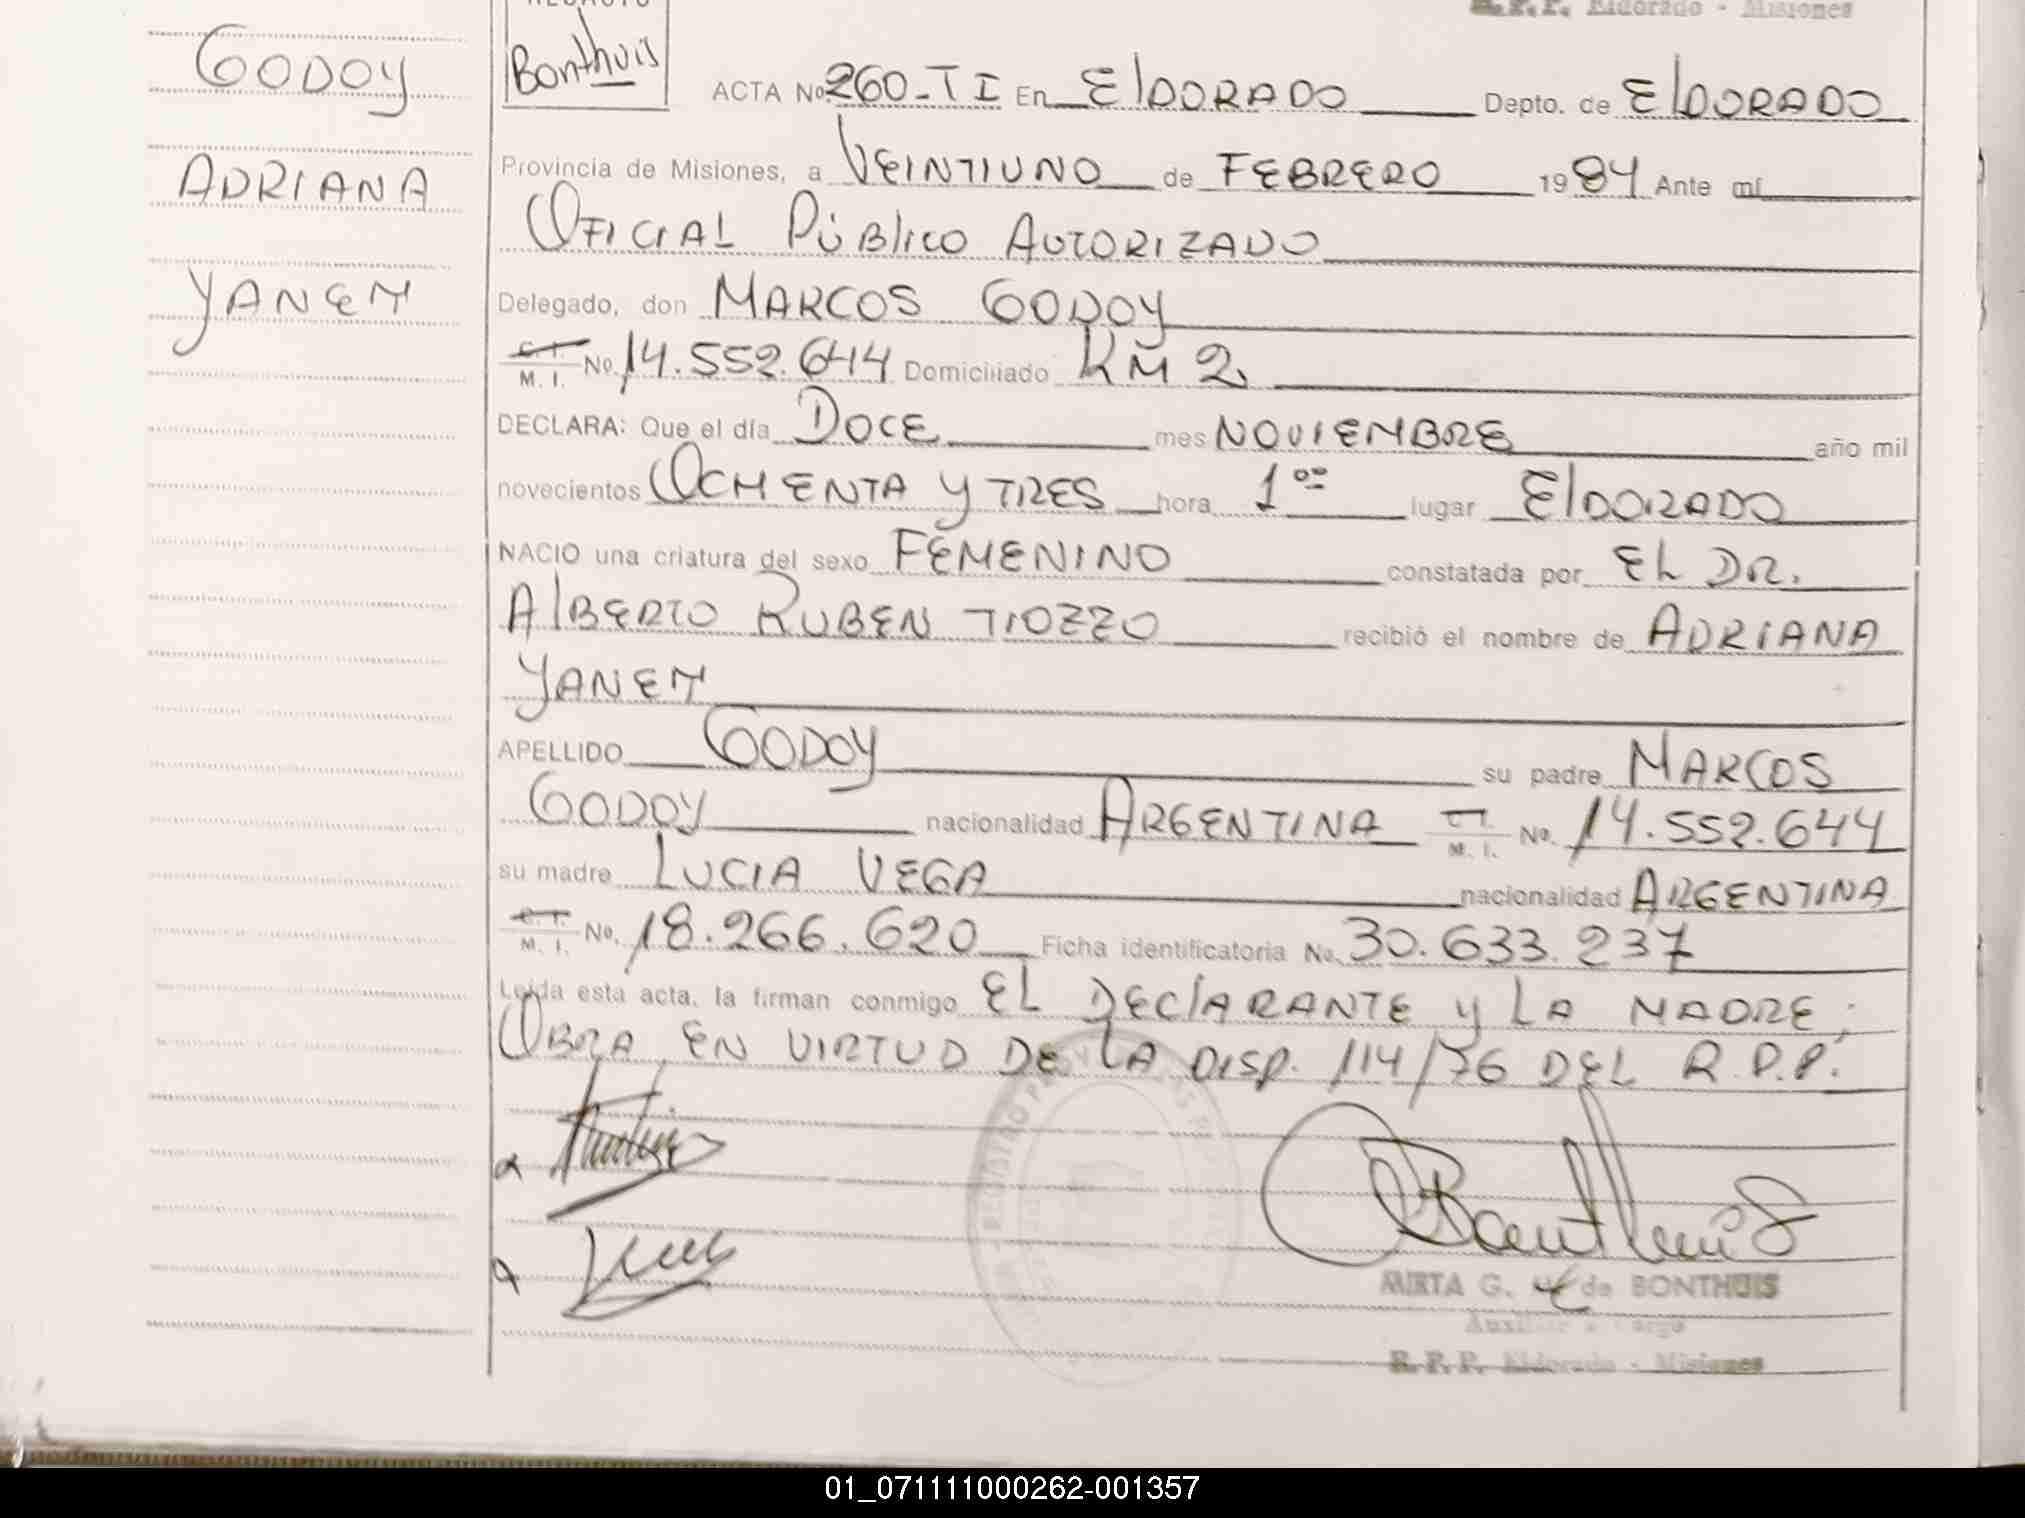 GODOY
ADRIANA
YANET
REDACTO
Bonthuis
R.P.P. Eldorado - Misiones
ACTA No 260-TI En ElDORADO Depto. de ElDORADO
Provincia de Misiones, a VEINTIUNO de FEBRERO 1984 Ante mí
OFICIAL PÚBlICO AUTORIZADO
Delegado, don MARCOS GODOY
C.I. M. I. No. 14.552.644 Domiciliado KM 2
DECLARA: Que el día DOCE mes NOVIEMBRE año mil
novecientos OCHENTA Y TRES hora 1 oo lugar ElDORADO
NACIO una criatura del sexo FEMENINO constatada por EL DR.
AlBERTO RUBEN TIOZZO recibió el nombre de ADRIANA
YANET
APELLIDO GODOY su padre MARCOS
GODOY nacionalidad ARGENTINA C.I. M. I. No. 14.552.644
su madre LUCIA VEGA nacionalidad ARGENTINA
C.I. M. I. No. 18.266.620 Ficha identificatoria No. 30.633.237
Leída esta acta, la firman conmigo EL DEClARANTE Y LA MADRE;
OBRA EN VIRTUD DE LA DISP. 114/76 DEL R.P.P.
Bonthuis
MIRTA G. de BONTHUIS
Auxiliar a Cargo
R.P.P. Eldorado - Misiones
01_071111000262-001357